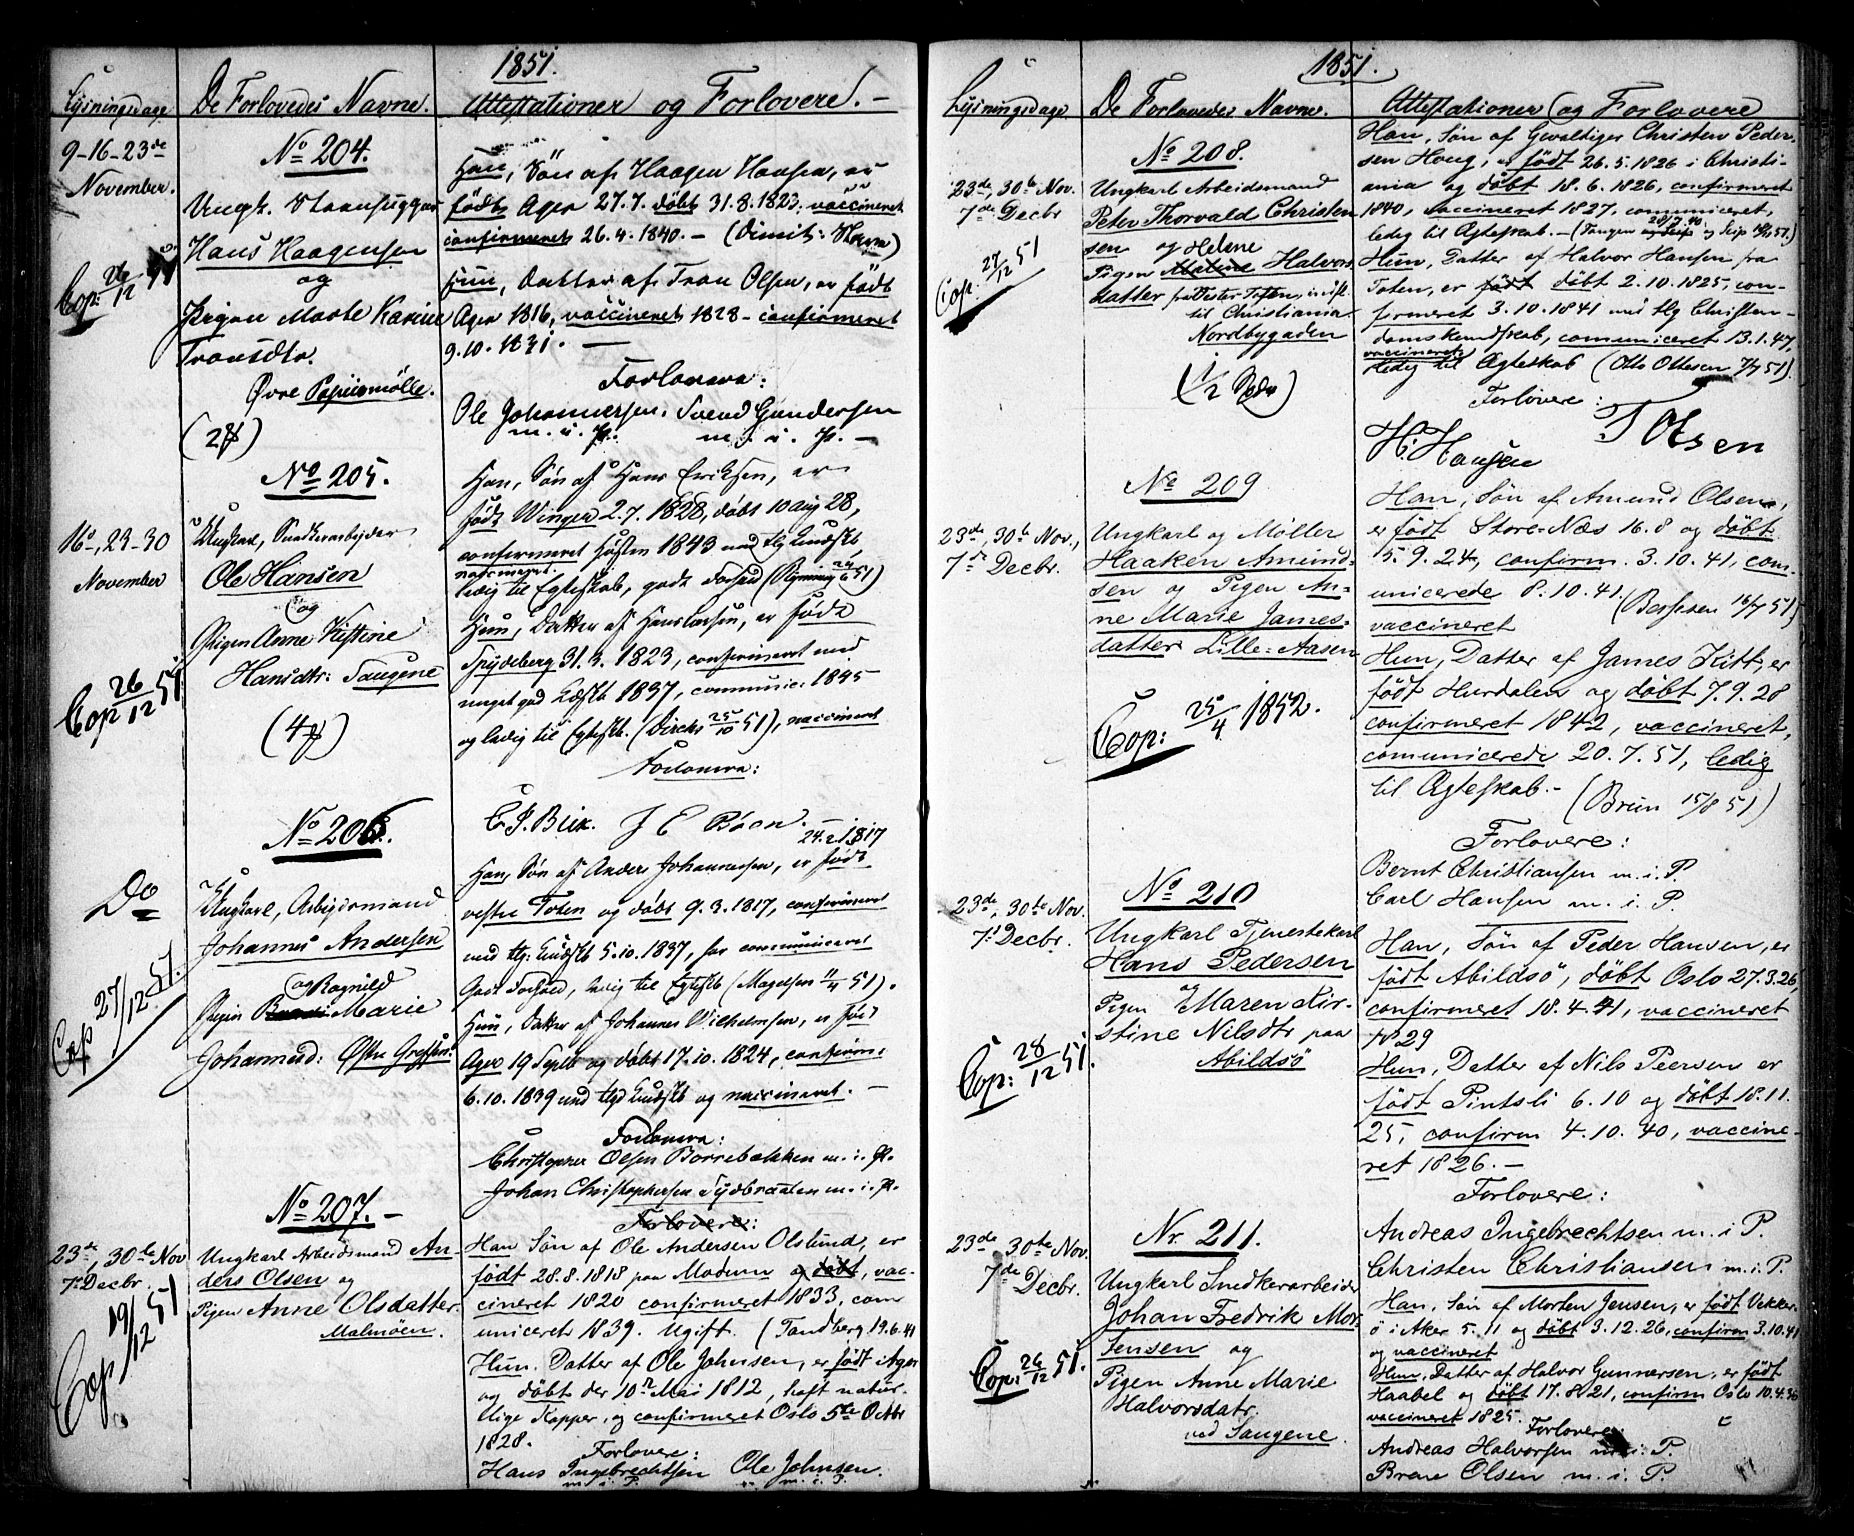 1851.
Lysningsdage
De Forlovedes Navne.
Attestationer og Forlovere.
9-16-23de
November.
Cop: 26/12 51
No 204.
Ungk.
Hans Haagensen
og
Pigen Marte Karine
Transdtr.
Øvre Papiirmølle.
Han, Søn af Haagen Hansen, er
født Ager 27.7. døbt 31.8.1823. vaccineret
confirmeret 26.4.1840. –
Hun, Datter af Tran Olsen, er født
Ager 1816, vaccineret 1828 – confirmeret
9.10.1831. –
Forlovere:
Ole Johannessen. Svend Gundersen
m. i. P. m. i. P. –
16, 23-30
November
Cop 26/12 51
No 205.
Ungkarl, Snedkerarbeider
Ole Hansen
og
Pigen Anne Kistine
Hansdtr: Saugene
Han, Søn af Hans Eriksen, er
født Winger 2.7.1828, døbt 10 aug 28,
confirmeret Høsten 1843 med Kundskb,
vaccineret.
ledig til Egteskab, godt Forhold
Hun, Datter af Hans Larsen, er født
Spydeberg 31.3.1823, confirmeret med
meget god 1837, communic: 1845
og ledig til Egteskb. (Dircks 25/10 51), vaccineret
Forlovere:
C. P. Bük. J E Böen. –
Do
Cop 27/12 51.
No 206.
Ungkarl, Arbeidsmand
Johannes Andersen
og Ragnild
Pigen Marie
Johannesd: Østre Grefsen.
24.2.1817
Han, Søn af Anders Johannessen, er født
vestre Toten og døbt 9.3.1817, confirmeret
med tlg: Kundskb 5.10.1837, har communiceret
Godt Forhold, ledig til Egteskb (Magelsen 11/4 51).
Hun, Datter af Johannes Wilhelmsen, er født
Ager 19 Septb og døbt 17.10.1824, confirm:
6.10.1839 med tlgd Kundskb og vaccineret. –
Forlovere:
Christopher Olsen Borrebækken m. i. P.
Johan Christophersen Sydbraaten m. i. P.
23de, 30te Nov
7 Decbr.
Cop 19/12 51
No 207. –
Ungkarl Arbeidsmand An-
ders Olsen og
Pigen Anne Olsdatter
Malmøen.
Forlovere:
Han Søn af Ole Andersen Olslund, er
født 28.8.1818 paa Modum og døbt, vac-
cineret 1820 confirmeret 1833, com
uniceret 1839. Ugift. (Tandberg 19.6.41
Hun. Datter af Ole Johnsen, er født i Ager
og døbt der 10n Mai 1812, haft natur-
lige Kopper, og confirmeret Oslo 5te Octbr
1828.
Forlovere:
Hans Ingebrechtsen Ole Johnsen.
m. i. P. m. i. P.
1851.
Lysningsdage
De Forlovedes Navne.
Attestationer og Forlovere
23de, 30te Nov.
7de Decbr
Cop: 27/12 51
No 208.
Ungkarl Arbeidsmand
Peter Thorvald Christen
sen og Helene
Pigen Malene Halvors
datter fra Vester Toten,
til Christiania
Nordbygaden
Han, Søn af Gevaldiger Christen Peder-
sen Houg, er født 26.5.1826 i Christi-
ania og døbt 18.6.1826, confirmeret
1840, vaccineret 1827, communiceret,
ledig til Egteskab. –
Hun, Datter af Halvor Hansen fra
Toten, er født døbt 2.10.1825, con-
firmeret 3.10.1841 med tlg Christen-
domskundskab, communiceret 13.1.47,
vaccineret
ledig til Ægteskab (Otto Ottesen 7/7 51).
Forlovere:
H. Hansen
T Olsen
23de, 30te Nov.,
7de Decbr.
No 209
Ungkarl og Møller
Haaken Amund-
sen og Pigen An-
ne Marie James-
datter Lille-Aasen
Cop: 25/4 1852.
Han, Søn af Amund Olsen,
er født Store-Næs 16.8 og døbt
5.9.24, confirm. 3.10.41, com-
unicerede 8.10.41.
(Bessesen 16/7 51)
vaccineret
Hun, Datter af James Kitt, er
født Hurdalen og døbt 7.9.28
confirmeret 1842, vaccineret,
comunicerede 20.7.51, ledig
til Ægteskab. –
(Brun 15/8 51)
Forlovere:
Bernt Christiansen m. i. P.
Carl Hansen m. i. P.
23de, 30te Nov.
7d Decbr.
Cop: 28/12 51.
No 210
Ungkarl Tjenestekarl
Hans Pedersen
og
Pigen Maren Kir-
stine Nilsdtr paa
Abildsö
Han, Søn af Peder Hansen, er
født Abildsö, døbt Oslo 27.3.26,
confirmeret 18.4.41, vaccineret
1829
Hun, Datter af Nils Peersen er
født Pintsli 6.10 og døbt 18.11.
25, confirm 4.10.40, vaccine-
ret 1826. –
Forlovere:
Andreas Ingebrechtsen m. i P.
Christen Christiansen m. i. P.
23de, 30te Nov.
7de Decbr.
Cop: 26/12 51.
Nr. 211.
Ungkarl Snedkerarbeider
Johan Fredrik Mor-
Jensen og
Pigen Anne Marie
Halvorsdatr.
ved Saugene.
Han, Søn af Morten Jensen, er født Vekker-
ö i Aker 5.11 og døbt 3.12.26, confirm 3.10.41
og vaccineret
Hun, Datter af Halvor Gunnersen, er født
Haabel og døbt 17.8.21, confirm Oslo 10.4.36
vaccineret 1825.
Forlovere
Andreas Halvorsen m. i. P.
Brene Olsen m. i. P.